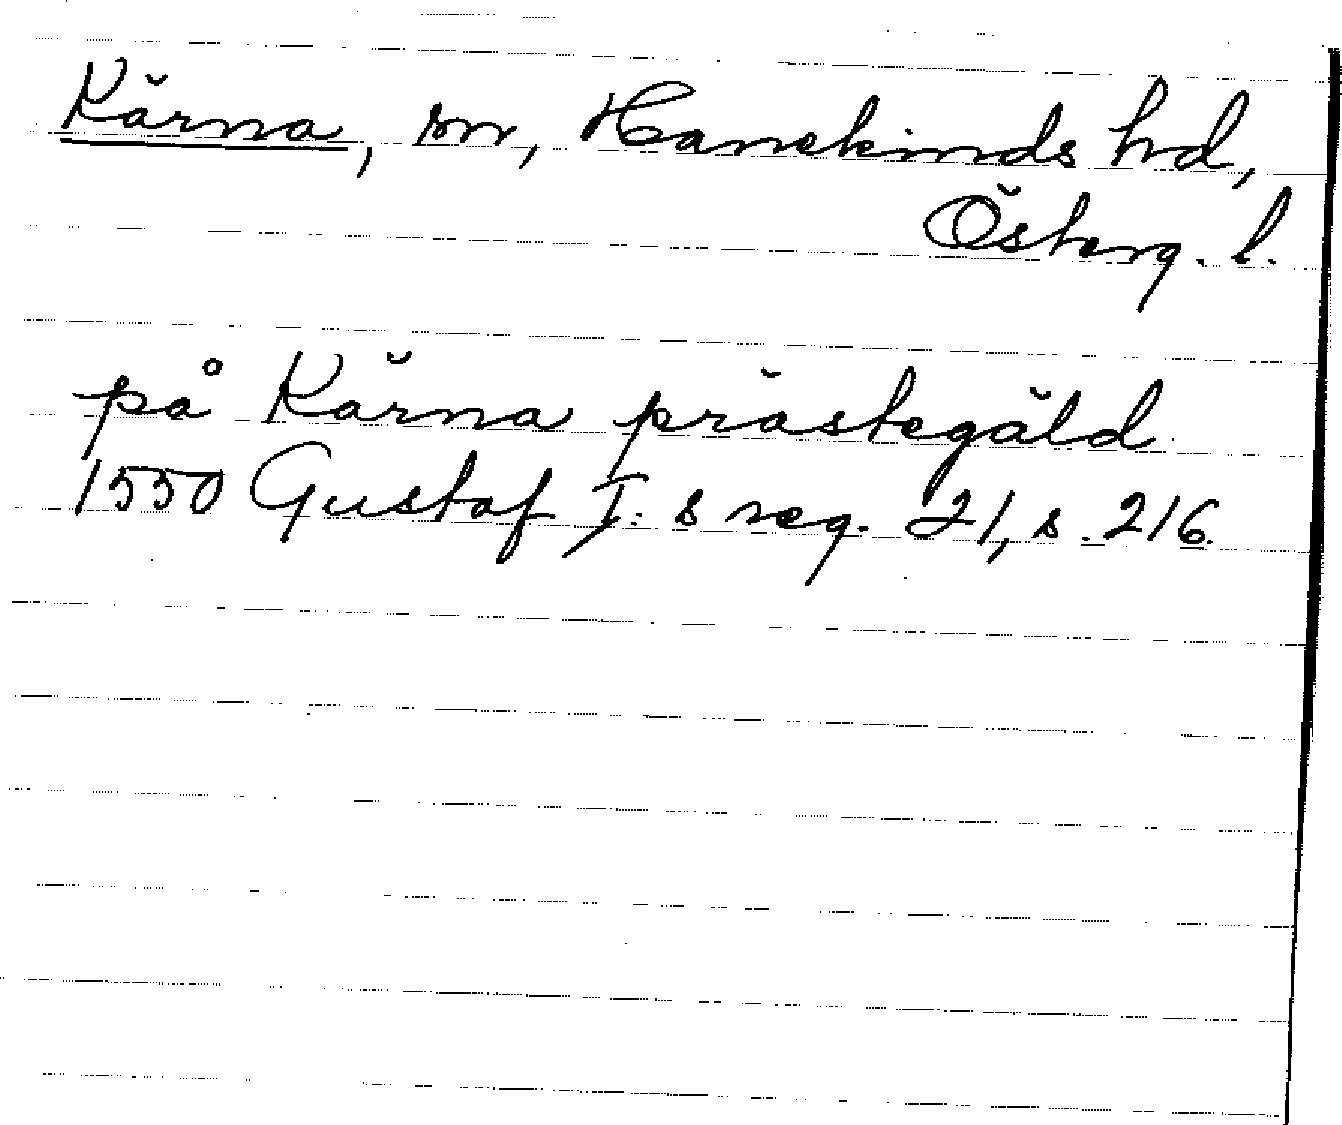 Kärna, sn, Hanekinds hd,
Österg. l.
på Kärna prästegäld
1550 Gustaf I: s reg. 21, s. 216.